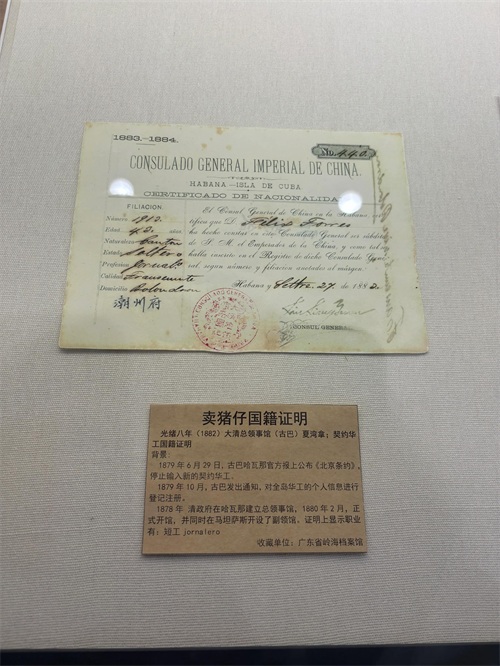 1883.-1884.
No. 440
CONSULADO GENERAL IMPERIAL DE CHINA.
HABANA—ISLA DE CUBA
CERTIFICADO DE NACIONALIDAD
FILIACION.
Núm. 1912
Edad 42
Naturaleza Canton
Estado Soltero
Profesion Jornal.
Calidad Transeunte
Domicilio Colon
潮州府
El Consul General de China en la Habana, certifica que D. Felix Torres
ha hecho constar en este Consulado General ser súbdito
de S. M. el Emperador de la China, y como tal se
halla inscrito en el Registro de dicho Consulado General,
segun número y filiacion anotados al márgen.
Habana y Setbre. 27 de 1882
CONSUL GENERAL
卖猪仔国籍证明
光绪八年（1882）大清总领事馆（古巴）夏湾拿；契约华
工国籍证明
背景：
1879年6月29日，古巴哈瓦那官方报上公布《北京条约》，
停止输入新的契约华工。
1879年10月，古巴发出通知，对全岛华工的个人信息进行
登记注册。
1878年 清政府在哈瓦那建立总领事馆，1880年2月，正
式开馆，并同时在马坦萨斯开设了副领馆。证明上显示职业
有：短工jornalero
收藏单位：广东省岭海档案馆